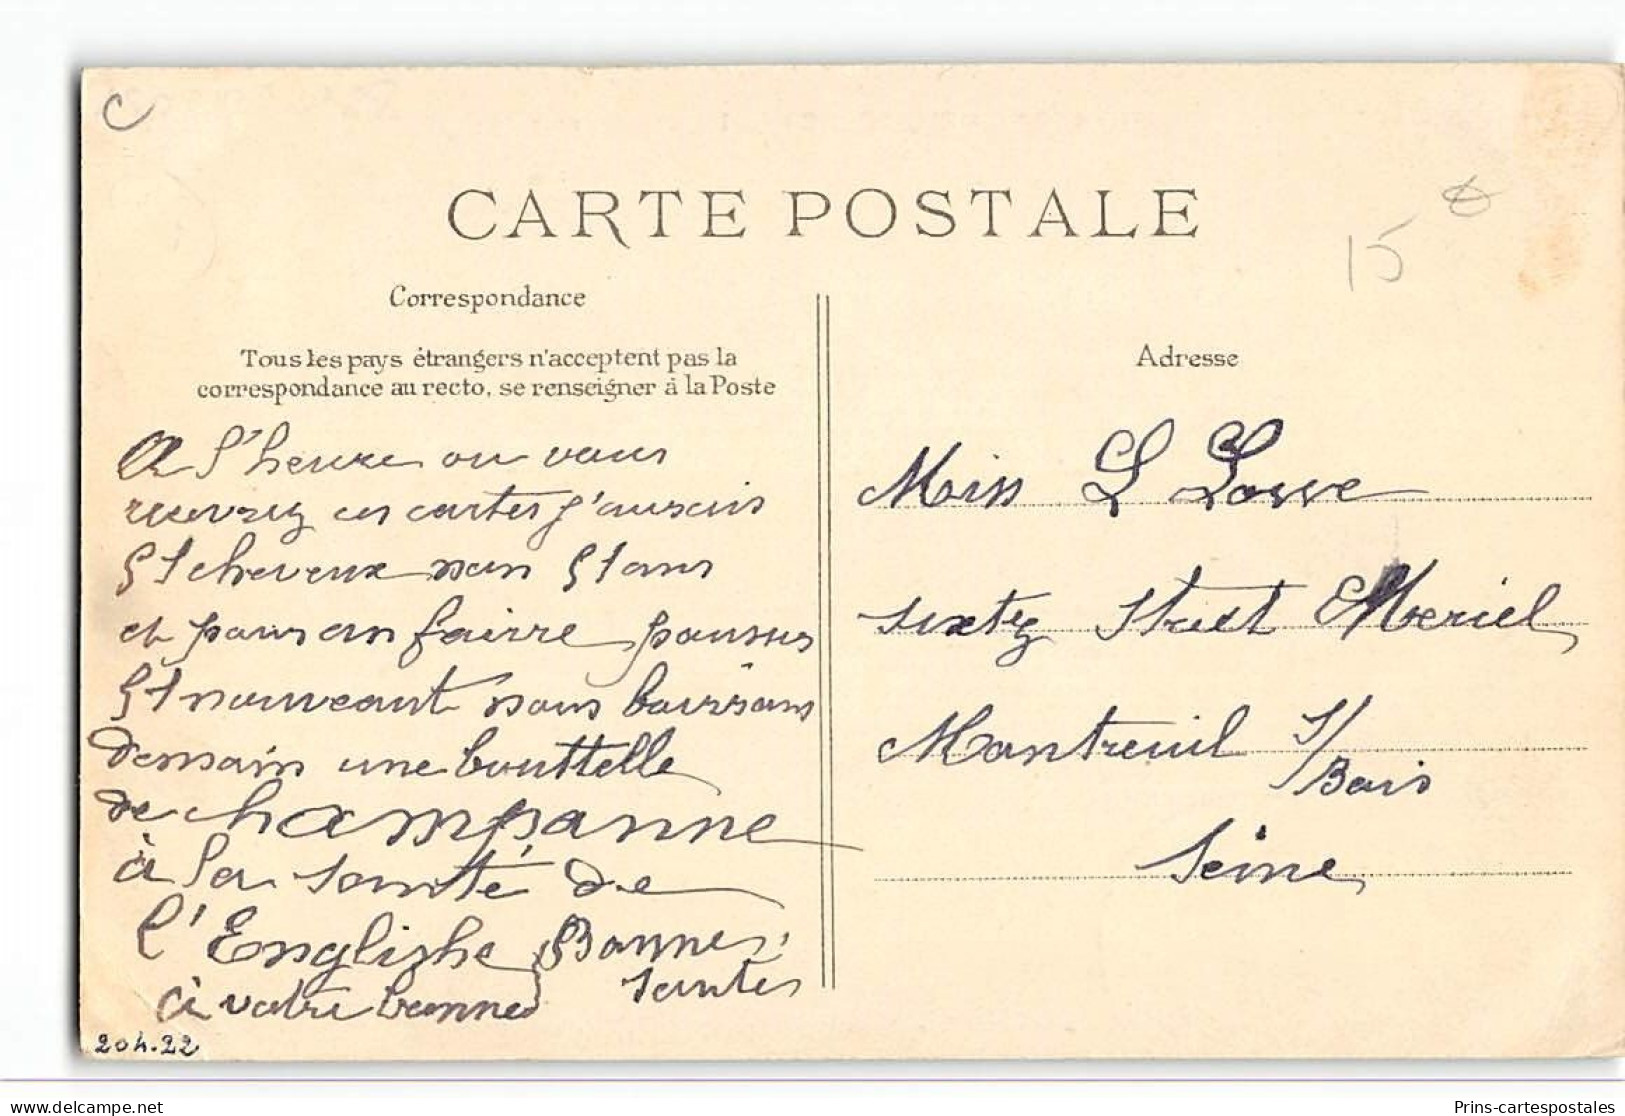 C
CARTE POSTALE
15
Correspondance
Tous les pays étrangers n'acceptent pas la
correspondance au recto, se renseigner à la Poste
A l'heure ou vous
recevrez ces cartes j'aurais
51 cheveux non 51 ans
et pour en fairre pousses
51 nouveaut nous boirrons
demain une bouttelle
de champanne
à la santé de
l'Englishe Bonnes
santés
à votre bonne
204.22
Adresse
Miss L Lowe
sixty Street Meriel
Montreuil s/Bois
Seine
Prins-cartespostales.com